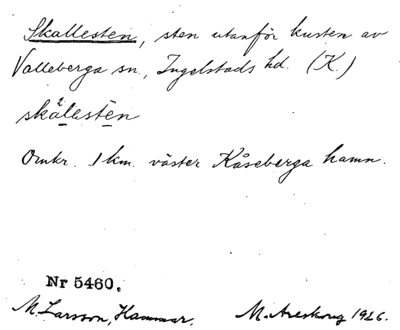 Skallesten, sten utanför kusten av
Valleberga sn., Ingelstads hd. (K.)
skålestèn
Omkr. 1 km. väster Kåseberga hamn.
Nr 5460.
M. Larsson, Hammar. M. Areskoug 1926.